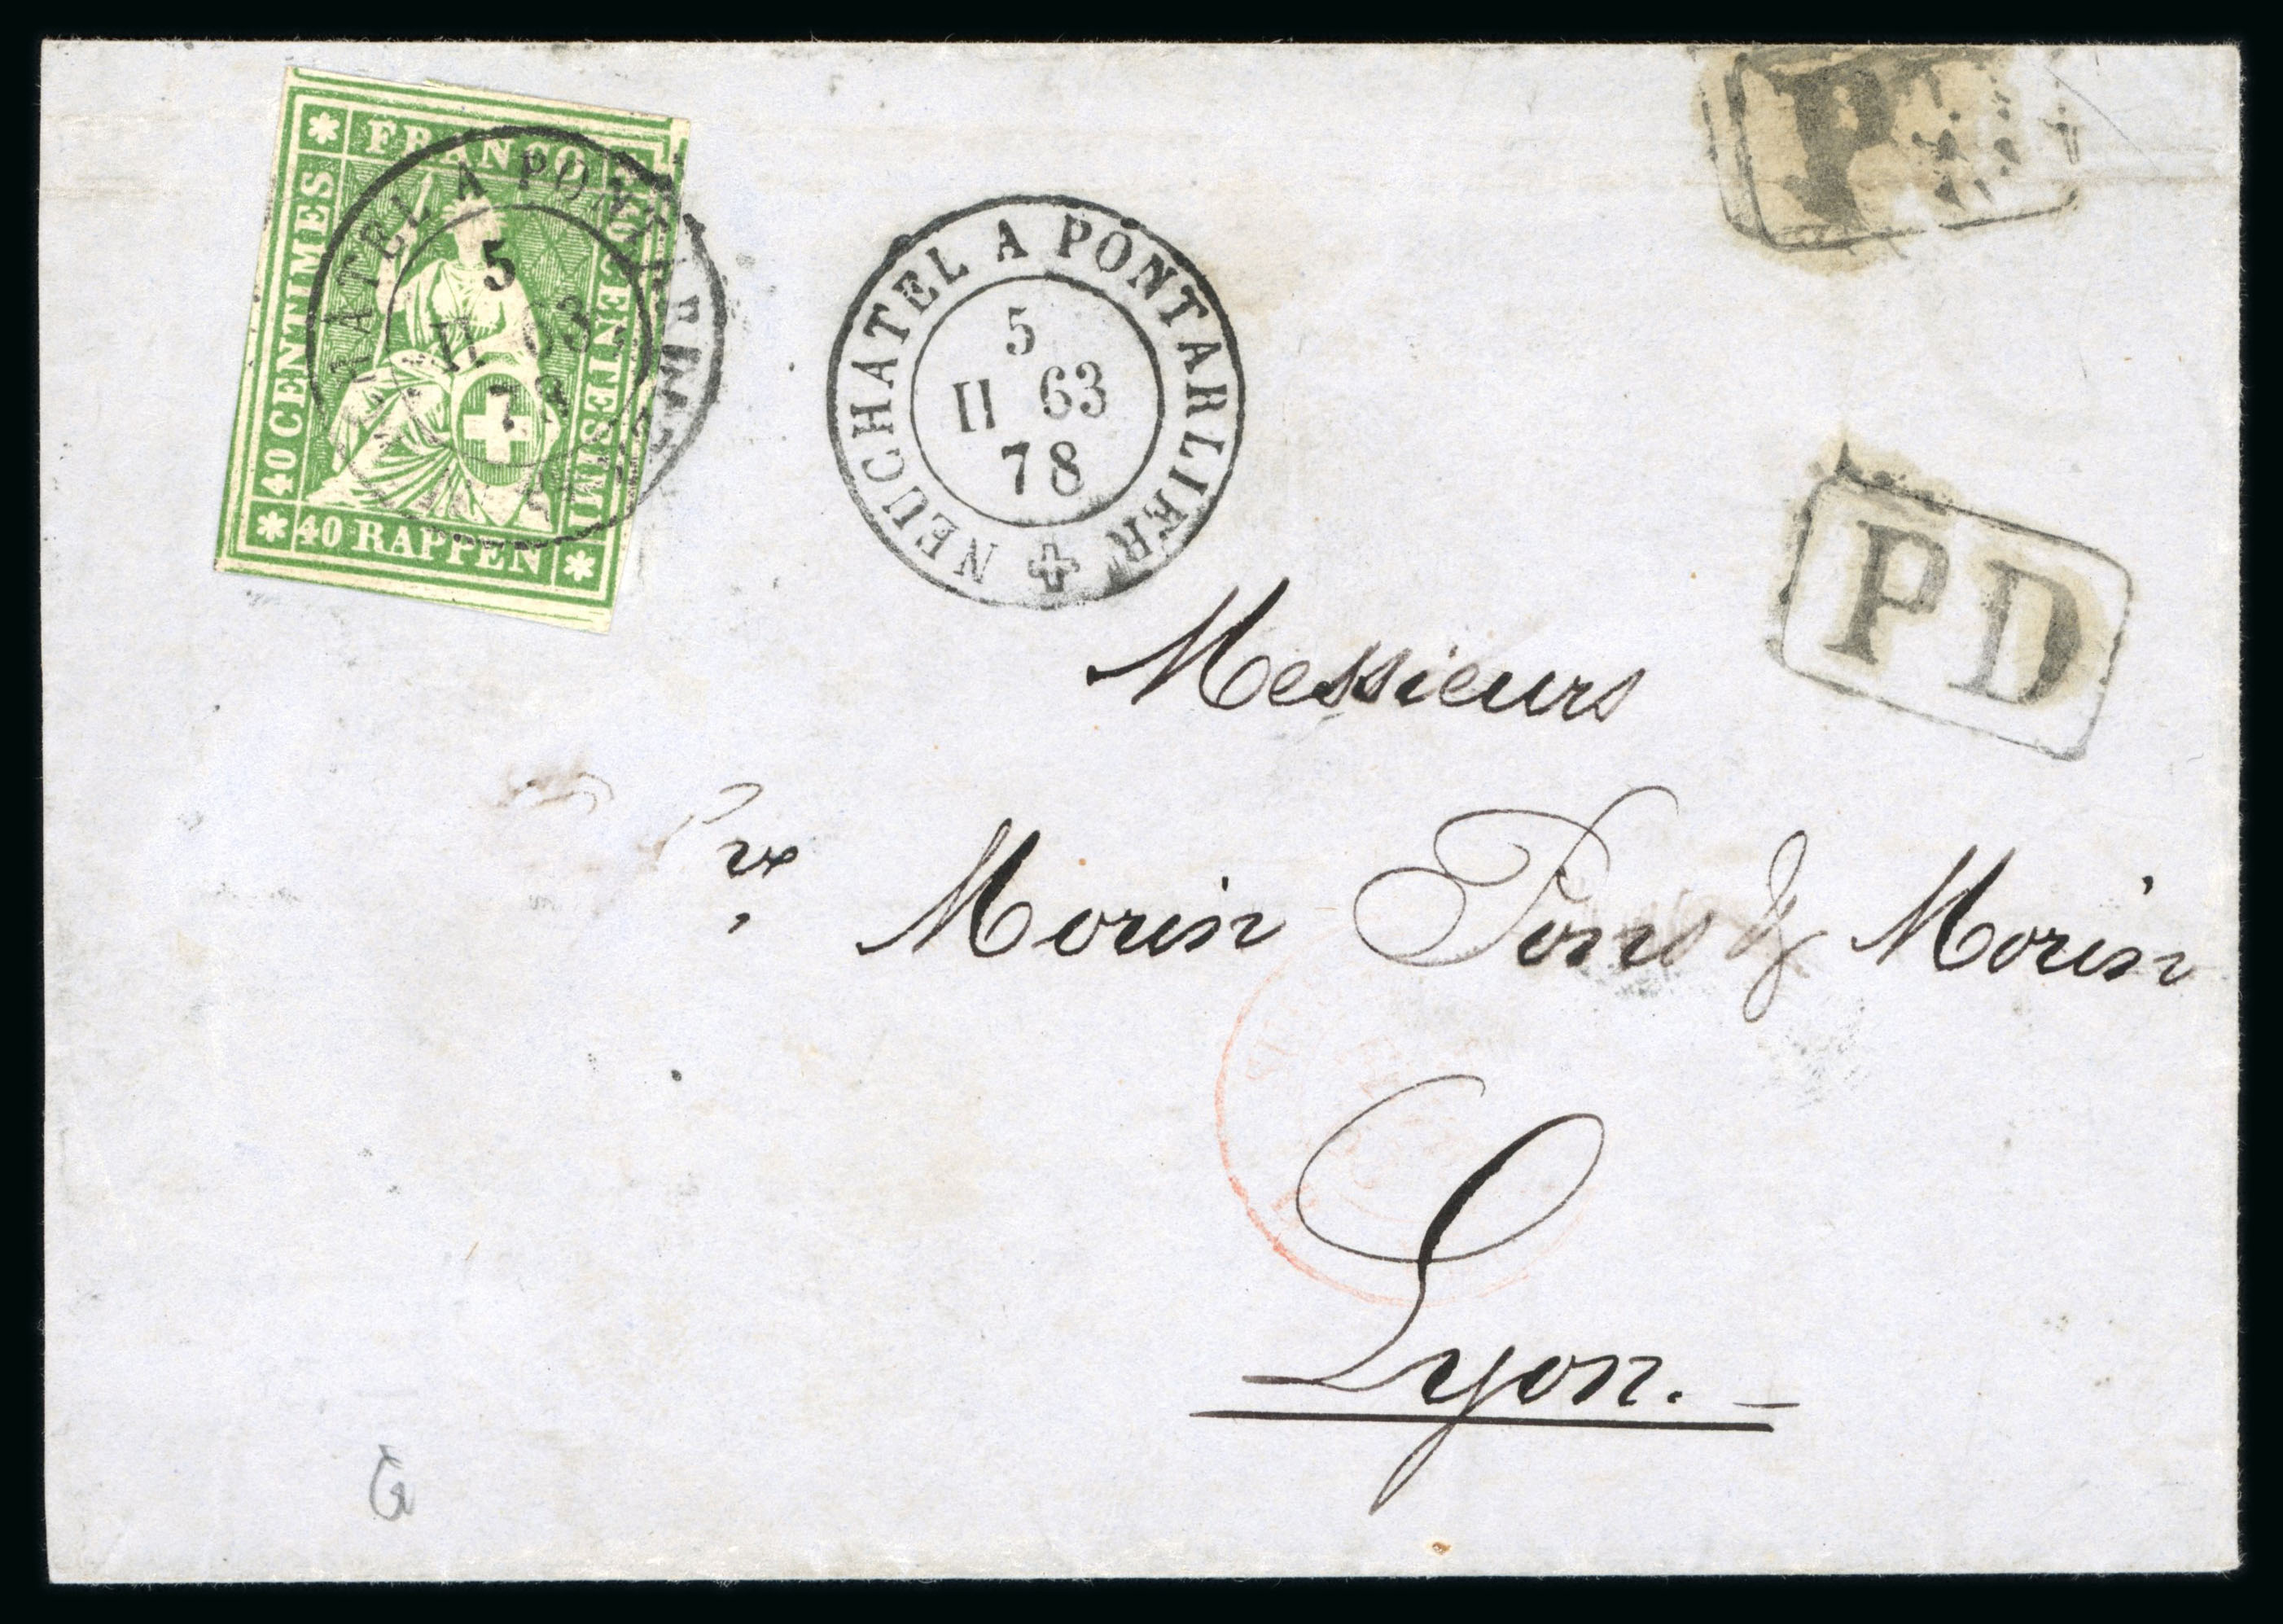 FRANCO
40 CENTIMES
40 CENTESIMI
40 RAPPEN
ATEL A PONTARLIER
5
II 63
78
NEUCHATEL A PONTARLIER
5
II 63
78
P
PD
Messieurs
Morin Pons & Morin
Lyon.